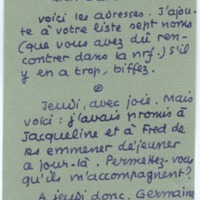 voici les adresses. J'ajou-
te à votre liste sept noms
(que vous avez dû ren-
contrer dans la nrf.) S'il
y en a trop, biffez.
Jeudi, avec joie. Mais
voici : j'avais promis à
Jacqueline et à Fred de
les emmener déjeuner
ce jour-là. Permettez-vous
qu'ils m'accompagnent?
A jeudi donc, Germaine